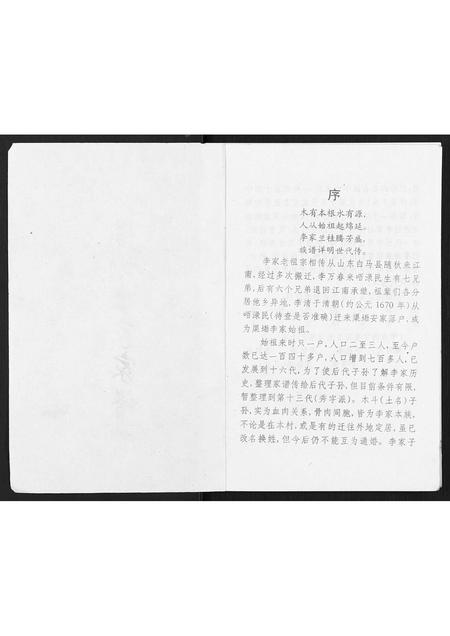 序
木有本根水有源，
人从始祖起绵延。
李家兰桂腾芳盛，
族谱详明世代传。
李家老祖宗相传从山东白马县随秋来江
南，经过多次搬迁，李万春来唔渌民生有七兄
弟，后有六个兄弟退回江南承继，祖辈们各分
居他乡异地，李清于清朝（约公元1670年）从
唔渌民（待查是否准确）迁来渠 安家落户，成
为渠 李家始祖。
始祖来时只一户，人口二至三人，至今户
数已达一百四十多户，人口增到七百多人，已
发展到十六代，为了使后代子孙了解李家历
史，整理家谱传给后代子孙，但目前条件有限，
暂整理到第十三代（秀字派）。木斗（土名）子
孙，实为血肉关系，骨肉同胞，皆为李家本族，
不论是在木村，或是有的迁往外地定居，虽已
改名换姓，但今后仍不能互为通婚。李家子